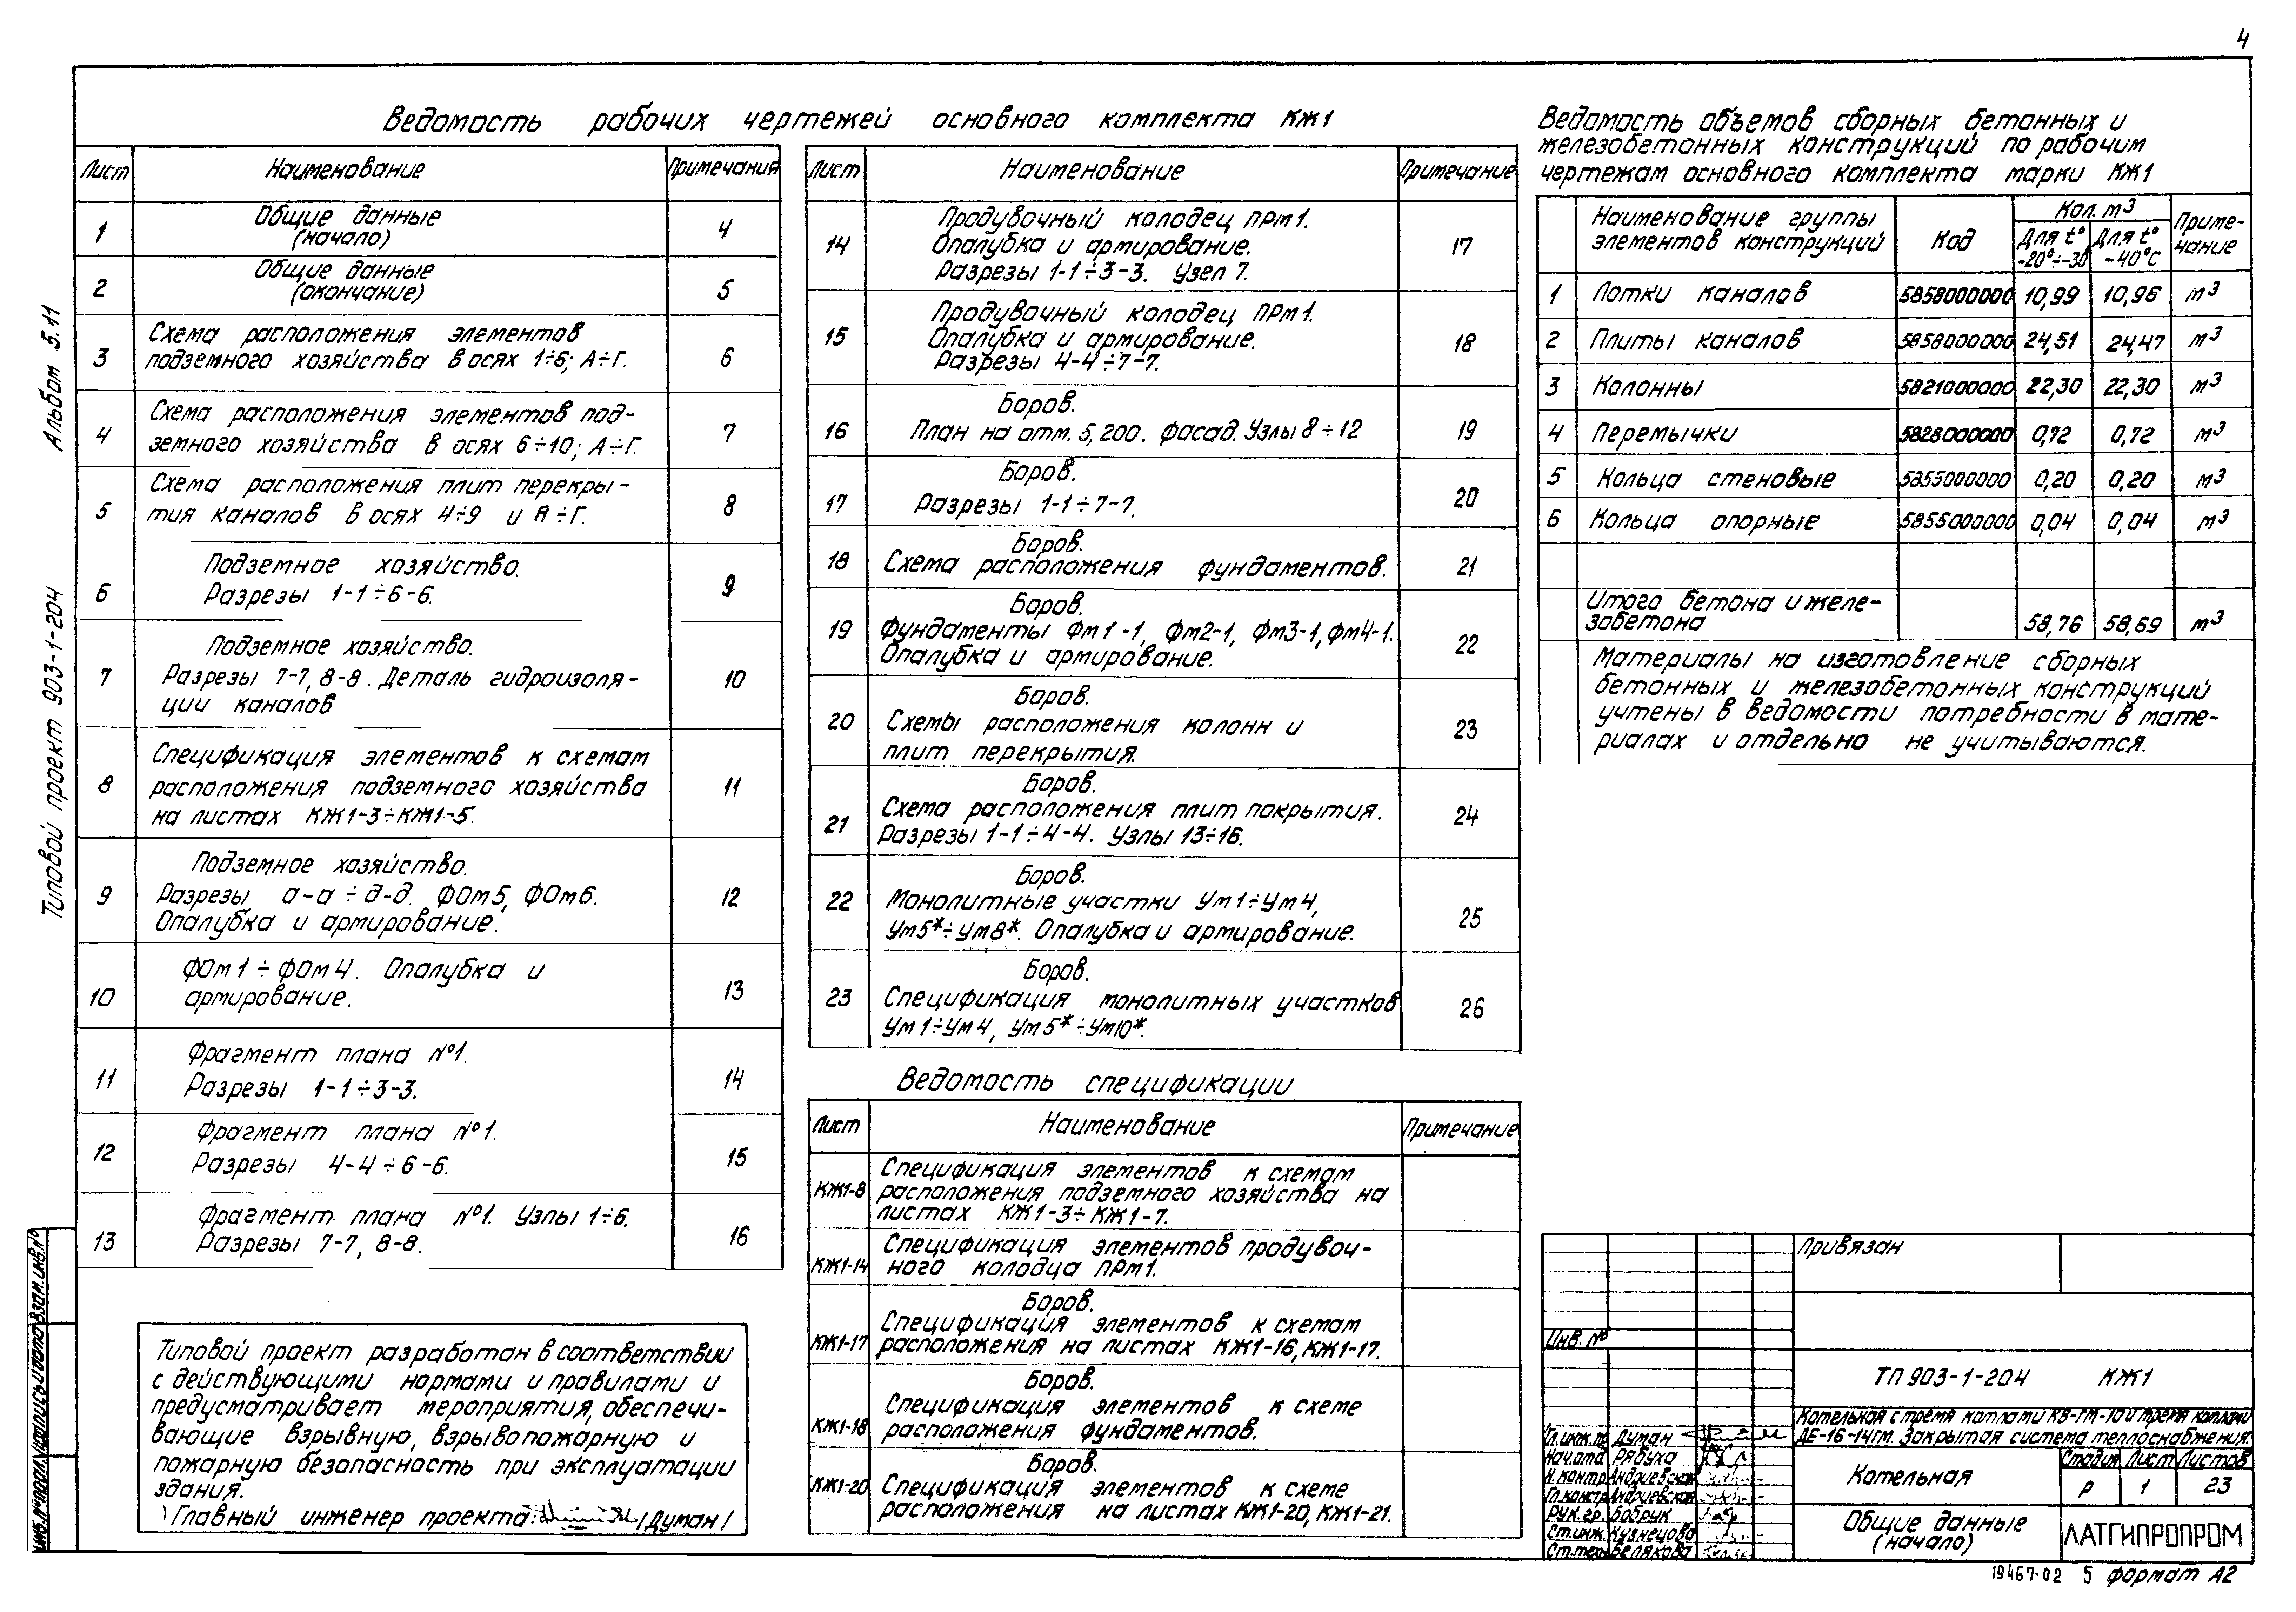 4
Альбом 5.11
Типовой проект 903-1-204
Ведомость рабочих чертежей основного комплекта КЖ1
Лист Наименование Примечания
1 Общие данные (начало) 4
2 Общие данные (окончание) 5
3 Схема расположения элементов
подземного хозяйства в осях 1÷6; А÷Г. 6
4 Схема расположения элементов под-
земного хозяйства в осях 6÷10; А÷Г. 7
5 Схема расположения плит перекры-
тия каналов в осях 4÷9 и А÷Г. 8
6 Подземное хозяйство.
Разрезы 1-1÷6-6. 9
7 Подземное хозяйство.
Разрезы 7-7, 8-8. Деталь гидроизоля-
ции каналов 10
8 Спецификация элементов к схемам
расположения подземного хозяйства
на листах КЖ1-3÷КЖ1-5. 11
9 Подземное хозяйство.
Разрезы а-а÷д-д. ФОм5, ФОм6.
Опалубка и армирование. 12
10 ФОм1÷ФОм4. Опалубка и
армирование. 13
11 Фрагмент плана №1.
Разрезы 1-1÷3-3. 14
12 Фрагмент плана №1.
Разрезы 4-4÷6-6. 15
13 Фрагмент плана №1. Узлы 1÷6.
Разрезы 7-7, 8-8. 16
Типовой проект разработан в соответствии
с действующими нормами и правилами и
предусматривает мероприятия, обеспечи-
вающие взрывную, взрывопожарную и
пожарную безопасность при эксплуатации
здания.
Главный инженер проекта: /Думан/
Лист Наименование Примечание
14 Продувочный колодец ПРм1.
Опалубка и армирование.
Разрезы 1-1÷3-3. Узел 7. 17
15 Продувочный колодец ПРм1.
Опалубка и армирование.
Разрезы 4-4÷7-7. 18
16 Боров.
План на отм. 5,200. Фасад. Узлы 8÷12 19
17 Боров.
Разрезы 1-1÷7-7. 20
18 Боров.
Схема расположения фундаментов. 21
19 Боров.
Фундаменты Фм1-1, Фм2-1, Фм3-1, Фм4-1.
Опалубка и армирование. 22
20 Боров.
Схемы расположения колонн и
плит перекрытия. 23
21 Боров.
Схема расположения плит покрытия.
Разрезы 1-1÷4-4. Узлы 13÷16. 24
22 Боров.
Монолитные участки Ум1÷Ум4,
Ум5*÷Ум8*. Опалубка и армирование. 25
23 Боров.
Спецификация монолитных участков
Ум1÷Ум4, Ум5*÷Ум10*. 26
Ведомость спецификации
Лист Наименование Примечание
КЖ1-8 Спецификация элементов к схемам
расположения подземного хозяйства на
листах КЖ1-3÷КЖ1-7.
КЖ1-14 Спецификация элементов продувоч-
ного колодца ПРм1.
КЖ1-17 Боров.
Спецификация элементов к схемам
расположения на листах КЖ1-16, КЖ1-17.
КЖ1-18 Боров.
Спецификация элементов к схеме
расположения фундаментов.
КЖ1-20 Боров.
Спецификация элементов к схеме
расположения на листах КЖ1-20, КЖ1-21.
Ведомость объемов сборных бетонных и
железобетонных конструкций по рабочим
чертежам основного комплекта марки КЖ1
Наименование группы элементов конструкций Код Кол. м3 Приме-чание
Для t° -20°÷-30 Для t° -40°С
1 Лотки каналов 5858000000 10,99 10,96 м3
2 Плиты каналов 5858000000 24,51 24,47 м3
3 Колонны 5821000000 22,30 22,30 м3
4 Перемычки 5828000000 0,72 0,72 м3
5 Кольца стеновые 5855000000 0,20 0,20 м3
6 Кольца опорные 5855000000 0,04 0,04 м3
Итого бетона и желе-
зобетона 58,76 58,69 м3
Материалы на изготовление сборных
бетонных и железобетонных конструкций
учтены в ведомости потребности в мате-
риалах и отдельно не учитываются.
Привязан
Инв. №
ТП 903-1-204 КЖ1
Котельная с тремя котлами КВ-ГМ-10 и тремя котлами
ДЕ-16-14ГМ. Закрытая система теплоснабжения.
Гл.инж.пр Думан
Нач.отд Рябуха
Н.контр Андриевская
Гл.констр Андриевская
Рук.гр. Бобрук
Ст.инж. Кузнецова
Ст.техн Белякова
Котельная
Стадия Лист Листов
Р 1 23
Общие данные
(начало)
ЛАТГИПРОПРОМ
Инв.№подл. Подпись и дата Взам.инв.№
19467-02 5 формат А2